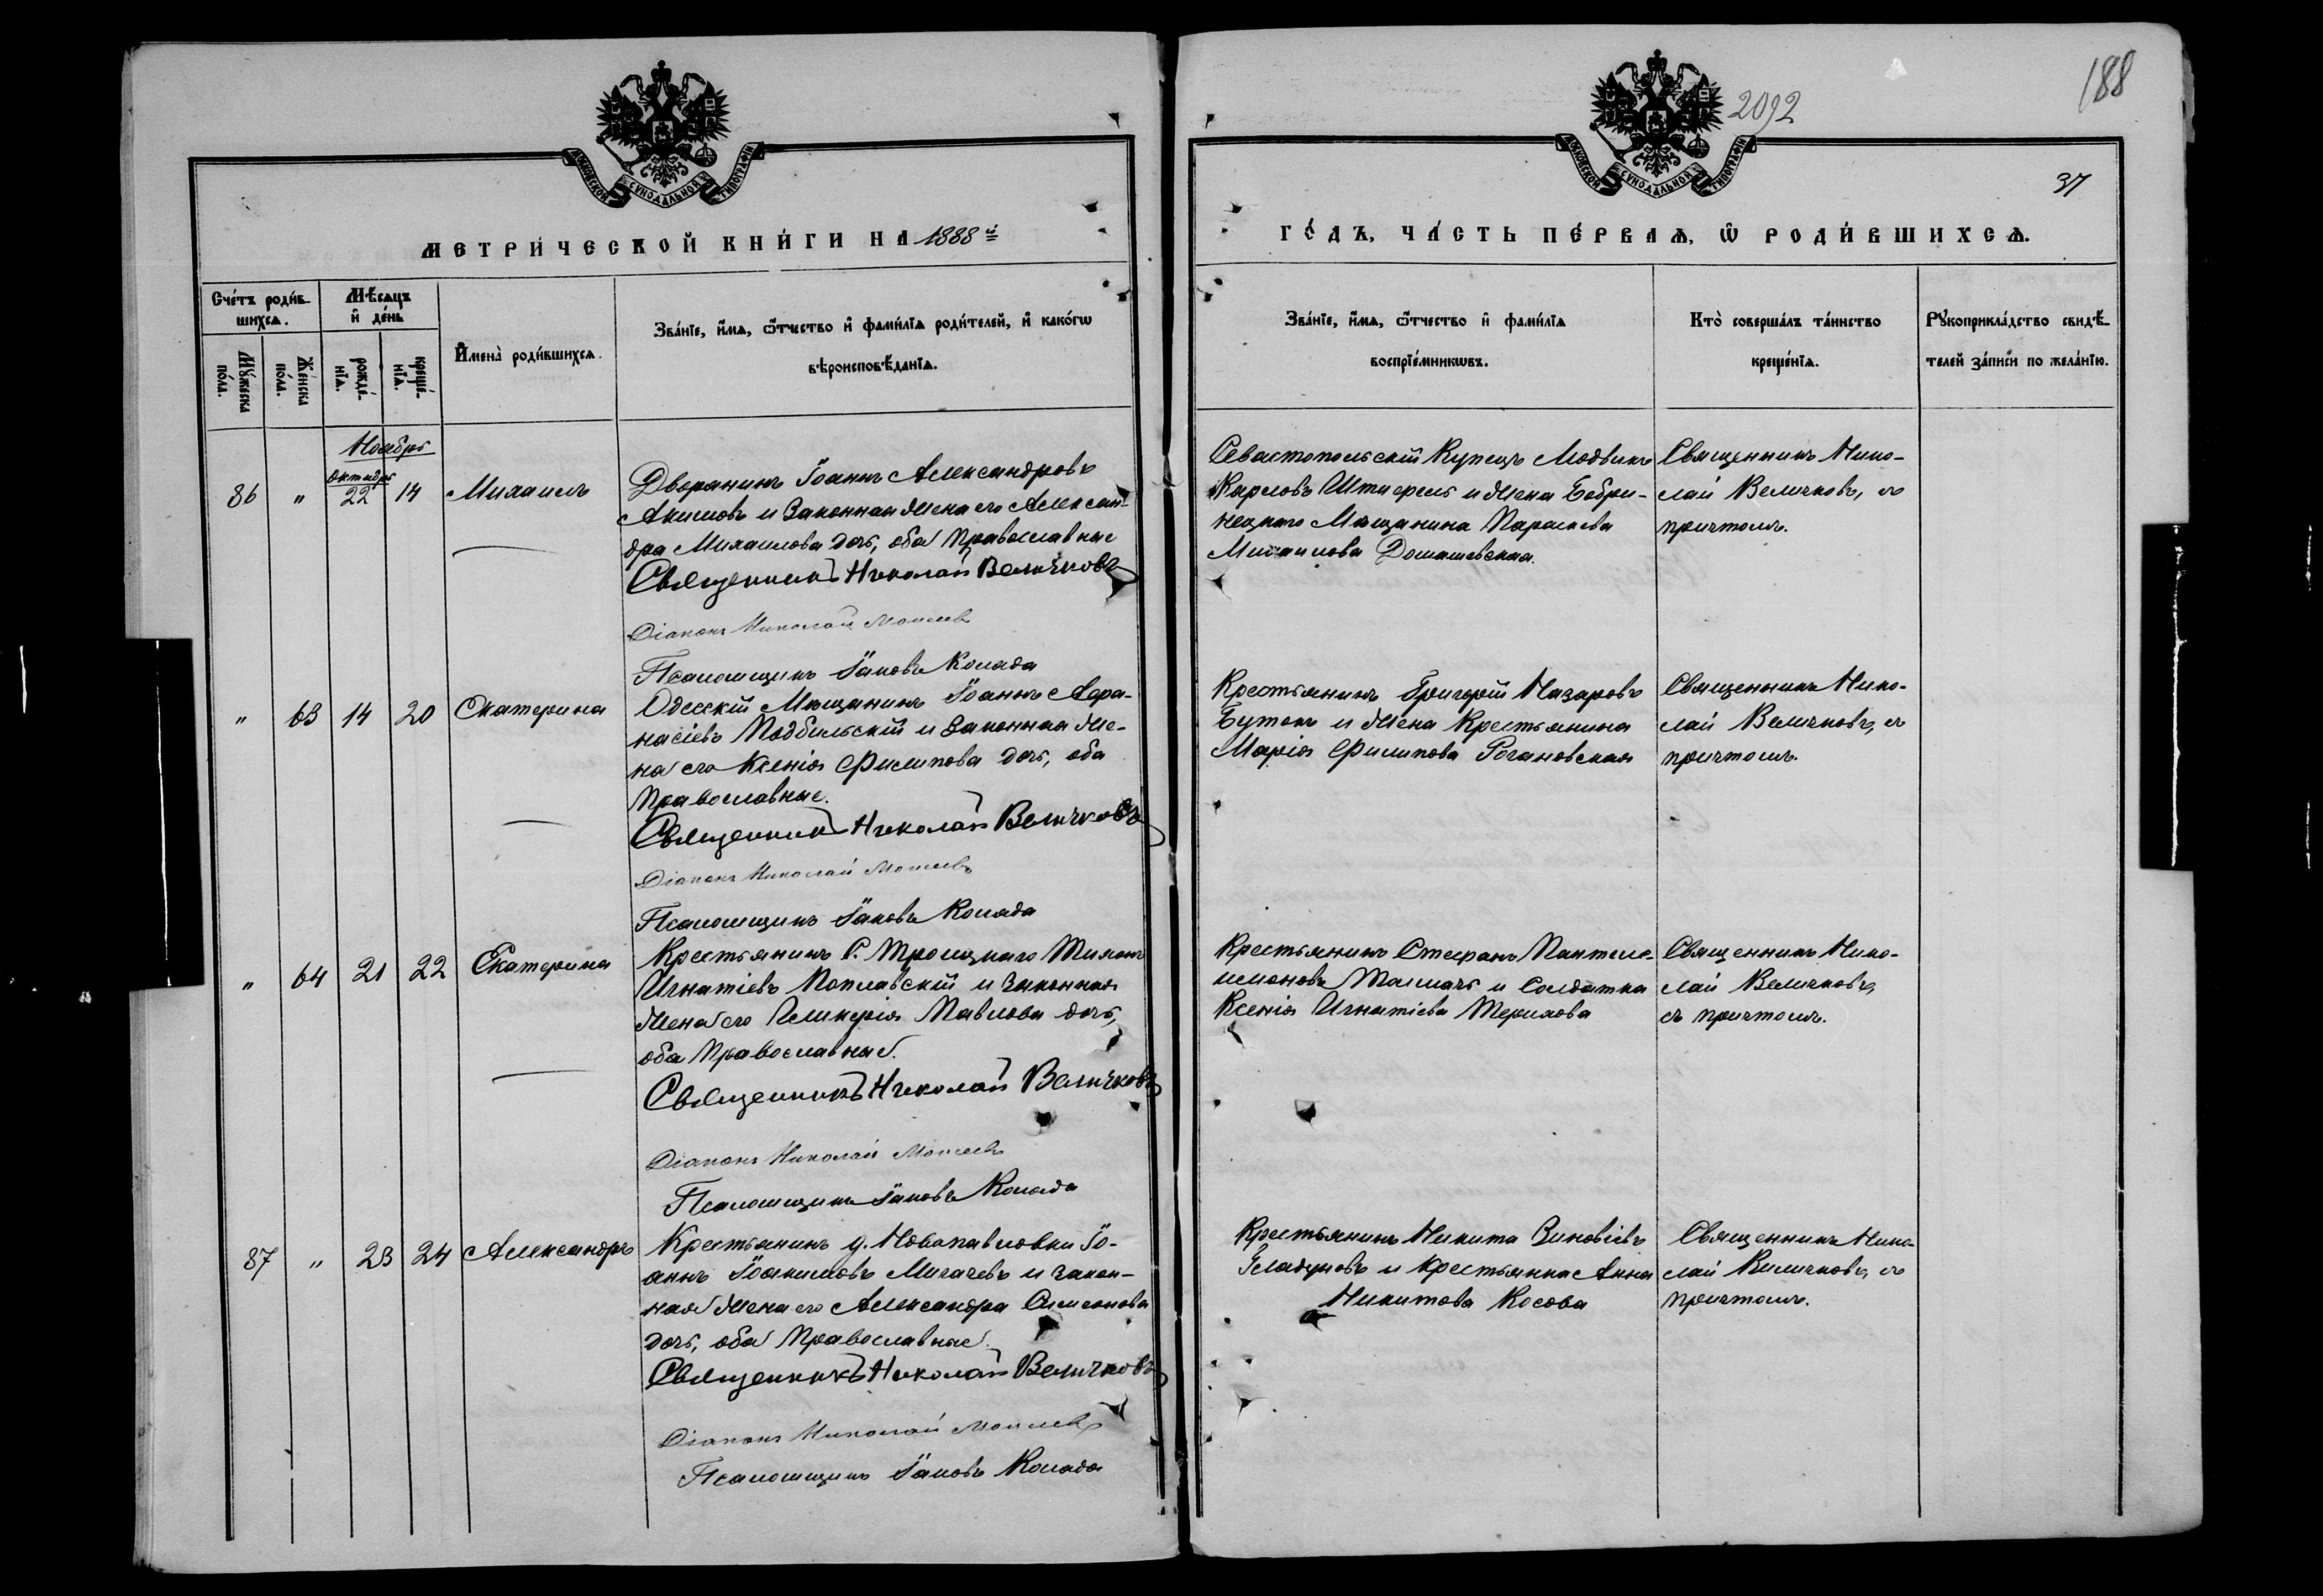 188
2092
37
МОСКОВСКОЙ СѴНОДАЛЬНОЙ ТИПОГРАФІИ
МОСКОВСКОЙ СѴНОДАЛЬНОЙ ТИПОГРАФІИ
МЕТРИ́ЧЕСКОЙ КНИ́ГИ НА 1888й
ГО́ДЪ, ЧА́СТЬ ПЕ́РВАѦ, Ѿ РОДИ́ВШИХСѦ.
Счéтъ роди́в-
шихсѧ.
Мѣ́сѧцъ
и҆ дéнь
Мꙋ́жеска
по́ла.
Же́нска
по́ла.
рожде́-
нїѧ.
креще́-
нїѧ.
И҆мена̀ роди́вшихсѧ.
Зва́нїе, и҆́мѧ, ѻ҆́тчество и҆ фами́лїѧ роди́телей, и҆ како́гѡ
вѣроисповѣ́данїѧ.
Зва́нїе, и҆́мѧ, ѻ҆́тчество и҆ фами́лїѧ
воспрїе́мникѡвъ.
Кто̀ соверша́лъ та́инство
креще́нїѧ.
Рꙋкоприкла́дство свидѣ́-
телей за́писи по жела́нїю.
Ноябрь
октябрь
86 " 22 14 Михаилъ
Дворянинъ Іоаннъ Александровъ
Акимовъ и Законная Жена его Алексан-
дра Михаилова дочь, оба Православные
Священникъ Николай Величковъ
Діаконъ Николай
Псаломщикъ Іаковъ Колада
Севастопольскій Купецъ Людвикъ
Карловъ Штиерель и Жена Бобри-
нецкаго Мѣщанина Параскева
Михаилова Домашевская.
Священникъ Нико-
лай Величковъ, съ
причтомъ.
" 63 14 20 Екатерина
Одесскій Мѣщанинъ Іоаннъ Афа-
насіевъ Подбѣльскій и Законная Же-
на его Ксенія Филипова дочь, оба
Православные.
Священникъ Николай Величковъ
Діаконъ Николай
Псаломщикъ Іаковъ Колада
Крестьянинъ Григорій Назаровъ
Бутокъ и Жена Крестьянина
Марія Филипова Рогановская
Священникъ Нико-
лай Величковъ, съ
причтомъ.
" 64 21 22 Екатерина
Крестьянинъ С. Троицкаго Тихонъ
Игнатіевъ Поплавскій и Законная
Жена его Гликерія Павлова дочь,
оба Православные.
Священникъ Николай Величковъ
Діаконъ Николай
Псаломщикъ Іаковъ Колада
Крестьянинъ Стефанъ Пантеле-
имоновъ Толмачъ и Солдатка
Ксенія Игнатіева Терихова
Священникъ Нико-
лай Величковъ,
съ причтомъ.
87 " 23 24 Александръ
Крестьянинъ д. Новопавловки Іо-
аннъ Іоакимовъ Михачевъ и Закон-
ная Жена его Александра Симеонова
дочь, оба Православные.
Священникъ Николай Величковъ
Діаконъ Николай
Псаломщикъ Іаковъ Колада
Крестьянинъ Никита Зиновіевъ
Гладуновъ и Крестьянка Анна
Никитова Косова
Священникъ Нико-
лай Величковъ, съ
причтомъ.